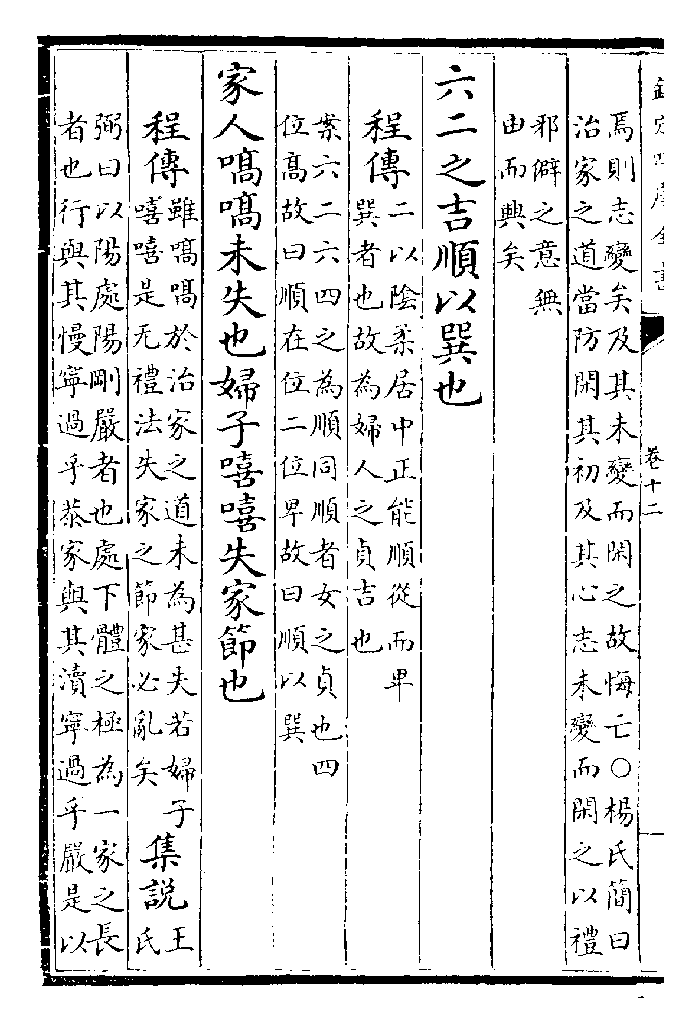 欽定四庫全書
卷十二
焉則志變矣及其未變而閑之故悔亡○楊氏簡曰
治家之道當防閑其初及其心志未變而閑之以禮
邪僻之意無
由而興矣
六二之吉順以巽也
程傳二以陰柔居中正能順從而卑
巽者也故為婦人之貞吉也
案六二六四之為順同順者女之貞也四
位髙故曰順在位二位卑故曰順以巽
家人嗃嗃未失也婦子嘻嘻失家節也
程傳雖嗃嗃於治家之道未為甚失若婦子
嘻嘻是无禮法失家之節家必亂矣
集説王
氏
弼曰以陽處陽剛嚴者也處下體之極為一家之長
者也行與其慢寧過乎恭家與其瀆寧過乎嚴是以